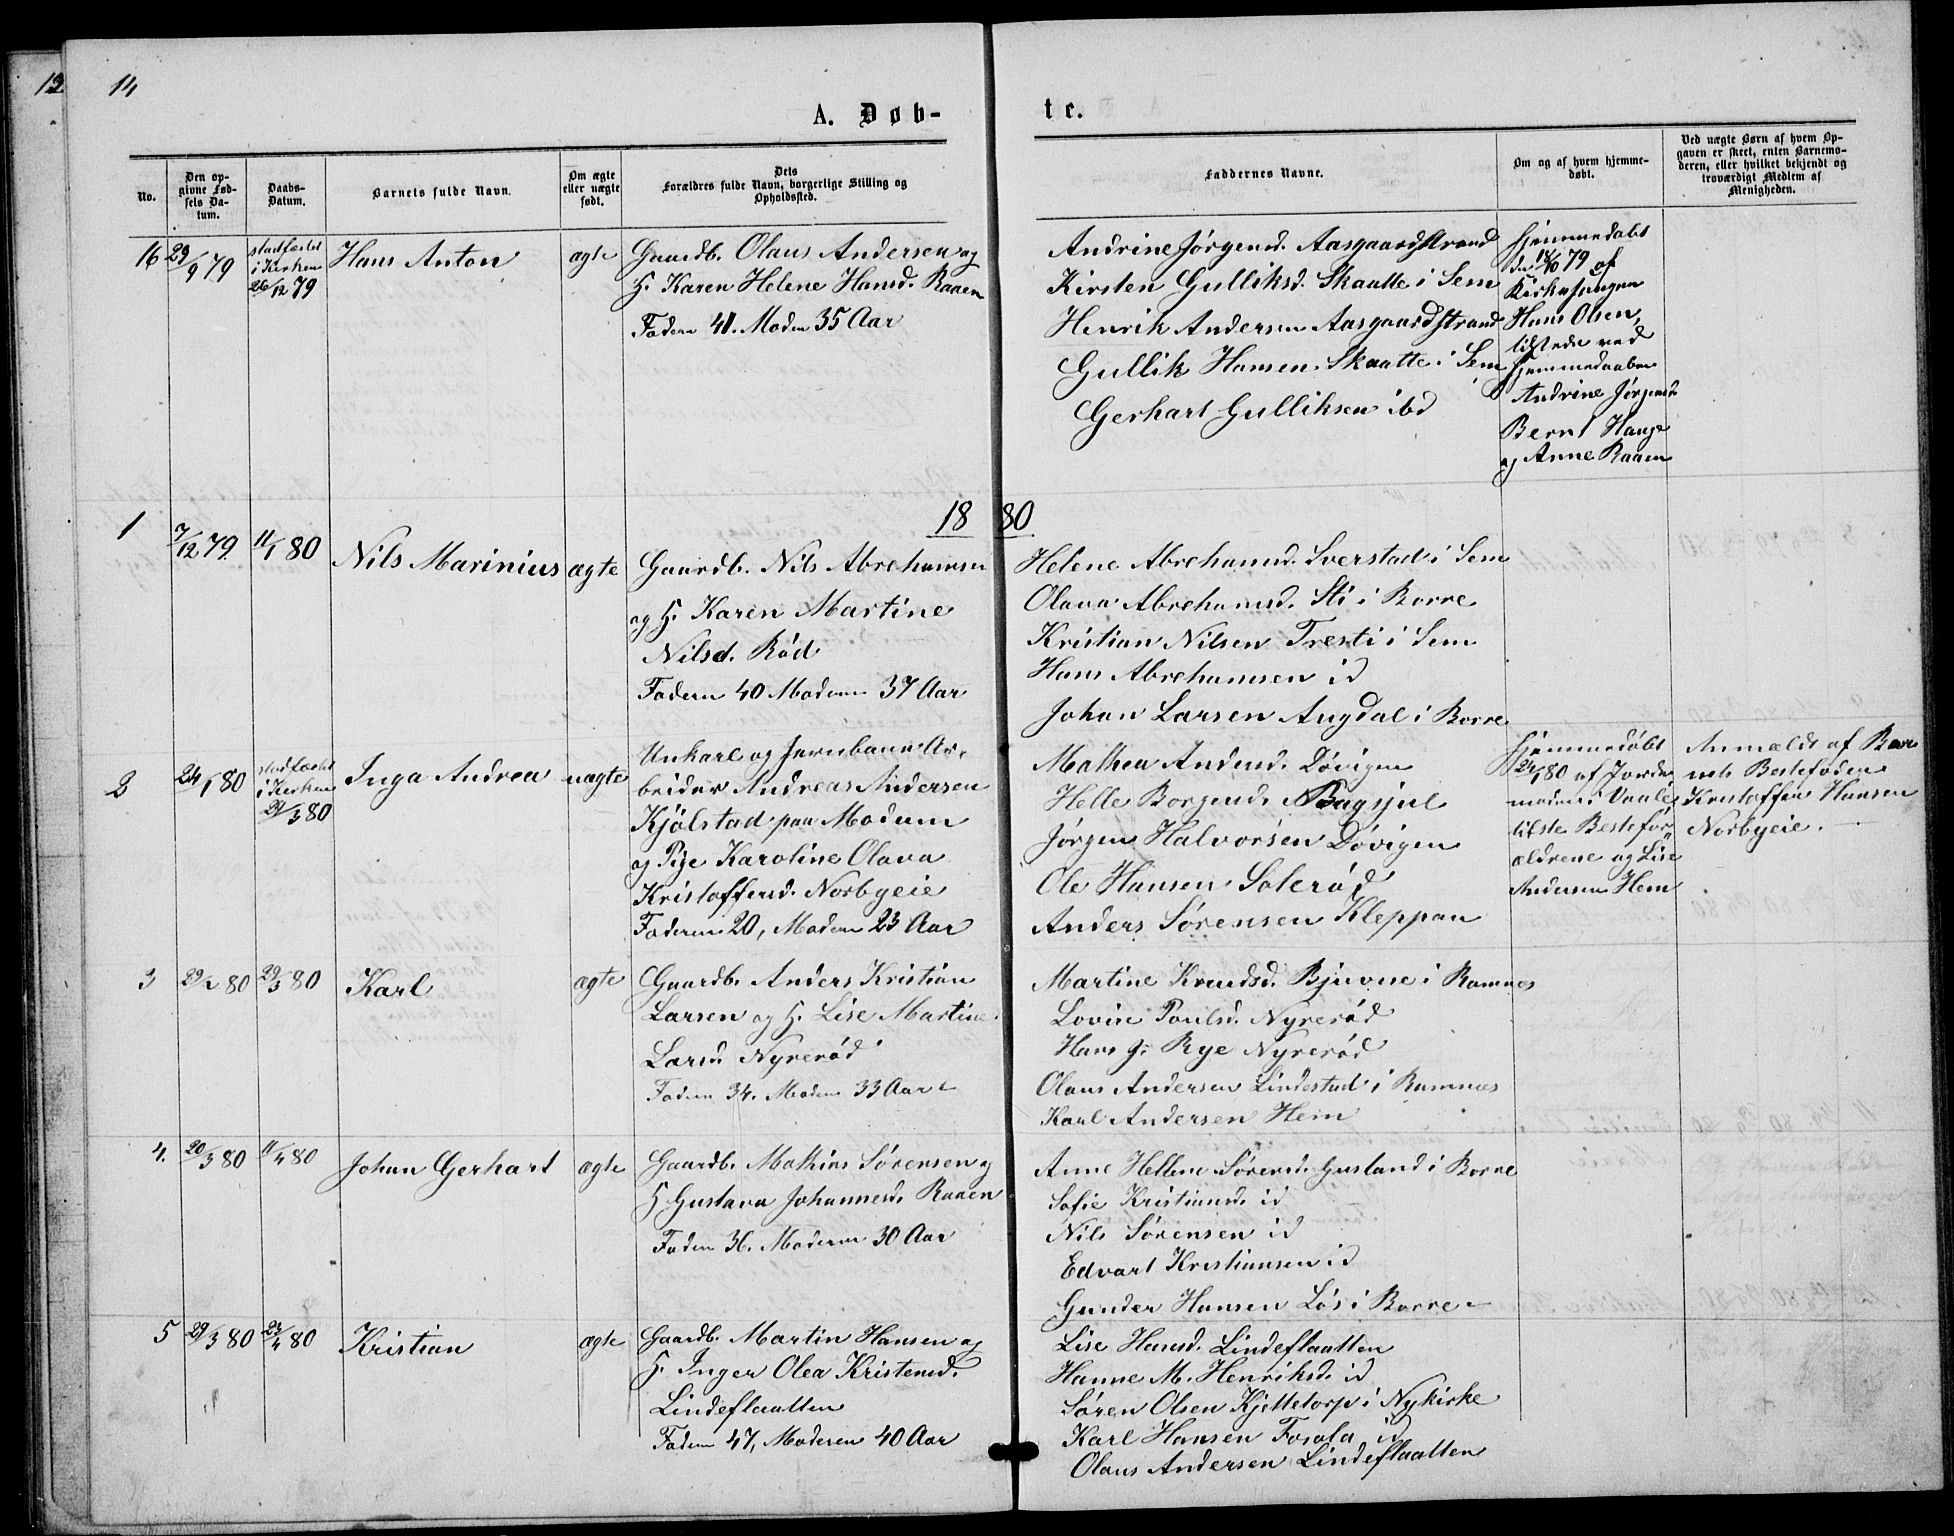 13
14
A. Døb-
te.
No.
Den op-
givne Fød-
sels Da-
tum.
Daabs-
Datum.
Barnets fulde Navn.
Om ægte
eller uægte
født.
Dets
Forældres fulde Navn, borgerlige Stilling og
Opholdssted.
Faddernes Navne.
Om og af hvem hjemme-
døbt.
Ved uægte Børn af hvem Op-
gaven er skeet, enten Barnemo-
deren, eller hvilket bekjendt og
troværdigt Medlem af
Menigheden.
16
23/9 79
stadfæstet
i Kirken
26/12 79
Hans Anton
ægte
Gaardb. Olaus Andersen og
H. Karen Helene Hansd. Raaen
Faderen 41. Moderen 35 Aar
Andrine Jørgensd. Aasgaardstrand
Kirsten Gulliksd. Skaatte i Sem
Henrik Andersen Aasgaardstrand
Gullik Hansen Skaatte i Sem
Gerhart Gulliksen ibd
Hjemmedøbt
d. 14/10 79 af
Kirkesangen
Hans Olsen,
tilstede ved
Hjemmedaaben
Andrine Jørgensd.
Bernt Hauge
og Anne Raaen
18 80
1
7/12 79
11/1 80
Nils Marinius
ægte
Gaardb. Nils Abrehamsen
og H. Karen Martine
Nilsd. Rød
Faderen 40 Moderen 37 Aar
Helene Abrehamsd. Sverstad i Sem
Olava Abrehamsd. Sti i Borre
Kristian Nilsen Tresti i Sem
Hans Abrehamsen id
Johan Larsen Augdal i Borre
2
24/1 80
stadfæstet
i Kirken
21/3 80
Inga Andrea
uægte
Unkarl og Jernbane Ar-
beider Andreas Andersen
Kjølstad paa Modum
og Pige Karoline Olava
Kristoffersd. Norbyeie
Faderen 20, Moderen 23 Aar
Mathea Andersd. Døvigen
Helle Borgersd. Bugsjul
Jørgen Halvorsen Døvigen
Ole Hansen Solerød
Anders Sørensen Kleppan
Hjemmedøbt
24/1 80 af Jorde
moder i Vaale
tilste Bestefor-
ældrene og Lise
Andersen Hem
Anmeldt af Bar
nets Bestefader
Kristoffer Hansen
Norbyeie.
3
29/2 80
29/3 80
Karl
ægte
Gaardb. Anders Kristian
Larsen og H. Lise Martine
Larsd. Nyrerød
Faderen 34. Moderen 33 Aar
Martine Knudsd. Bjuvne i Ramnes
Lovise Poulsd. Nyrerød
Hans J. Rye Nyrerød
Olaus Andersen Lindestad i Ramnes
Karl Andersen Hem
4.
20/3 80
11/4 80
Johan Gerhart
ægte
Gaardb. Mathias Sørensen og
H Gustava Johannesd. Raaen
Faderen 36. Moderen 30 Aar
Anne Hellene Sørensd. Gusland i Borre
Sofie Kristiansd. id
Nils Sørensen id
Edvart Kristiansen id
Gunder Hansen Løs i Borre
5
29/3 80
23/4 80
Kristian
ægte
Gaardb. Martin Hansen og
H. Inger Olea Kristensd.
Lindeflaatten
Faderen 47, Moderen 40 Aar
Lise Hansd. Lindeflaatten
Hanne M. Henriksd. id
Søren Olsen Kjettetorp i Nykirke
Karl Hansen Fosata id
Olaus Andersen Lindeflaatten